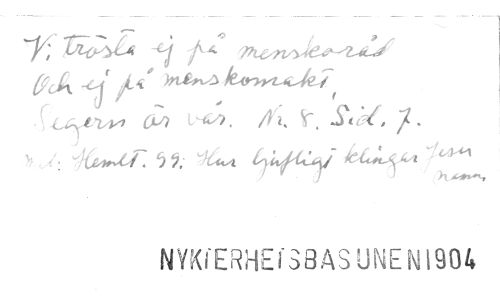 Vi trösta ej på menskoråd
Och ej på menskomakt
Segern är vår. Nr. 8. Sid. 7.
Mel: Hemlt. 99: Hur ljufligt klingar Jesu
namn
NYKTERHETSBASUNEN 1904